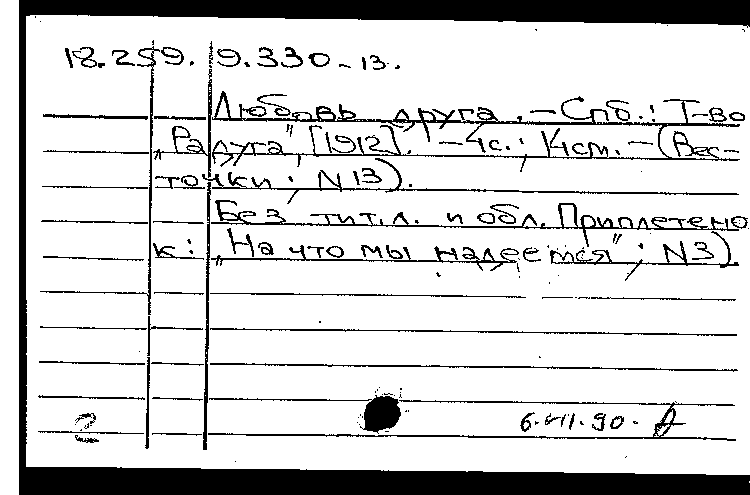 18.259. 9.330-13.
Любовь друга. - Спб.: Т-во
"Радуга", [1912]. - 4с.; 14см. - (Вес-
точки; N13).
Без тит.л. и обл. Приплетено
к: "На что мы надеемся"; N3).
2 6.VII.90.